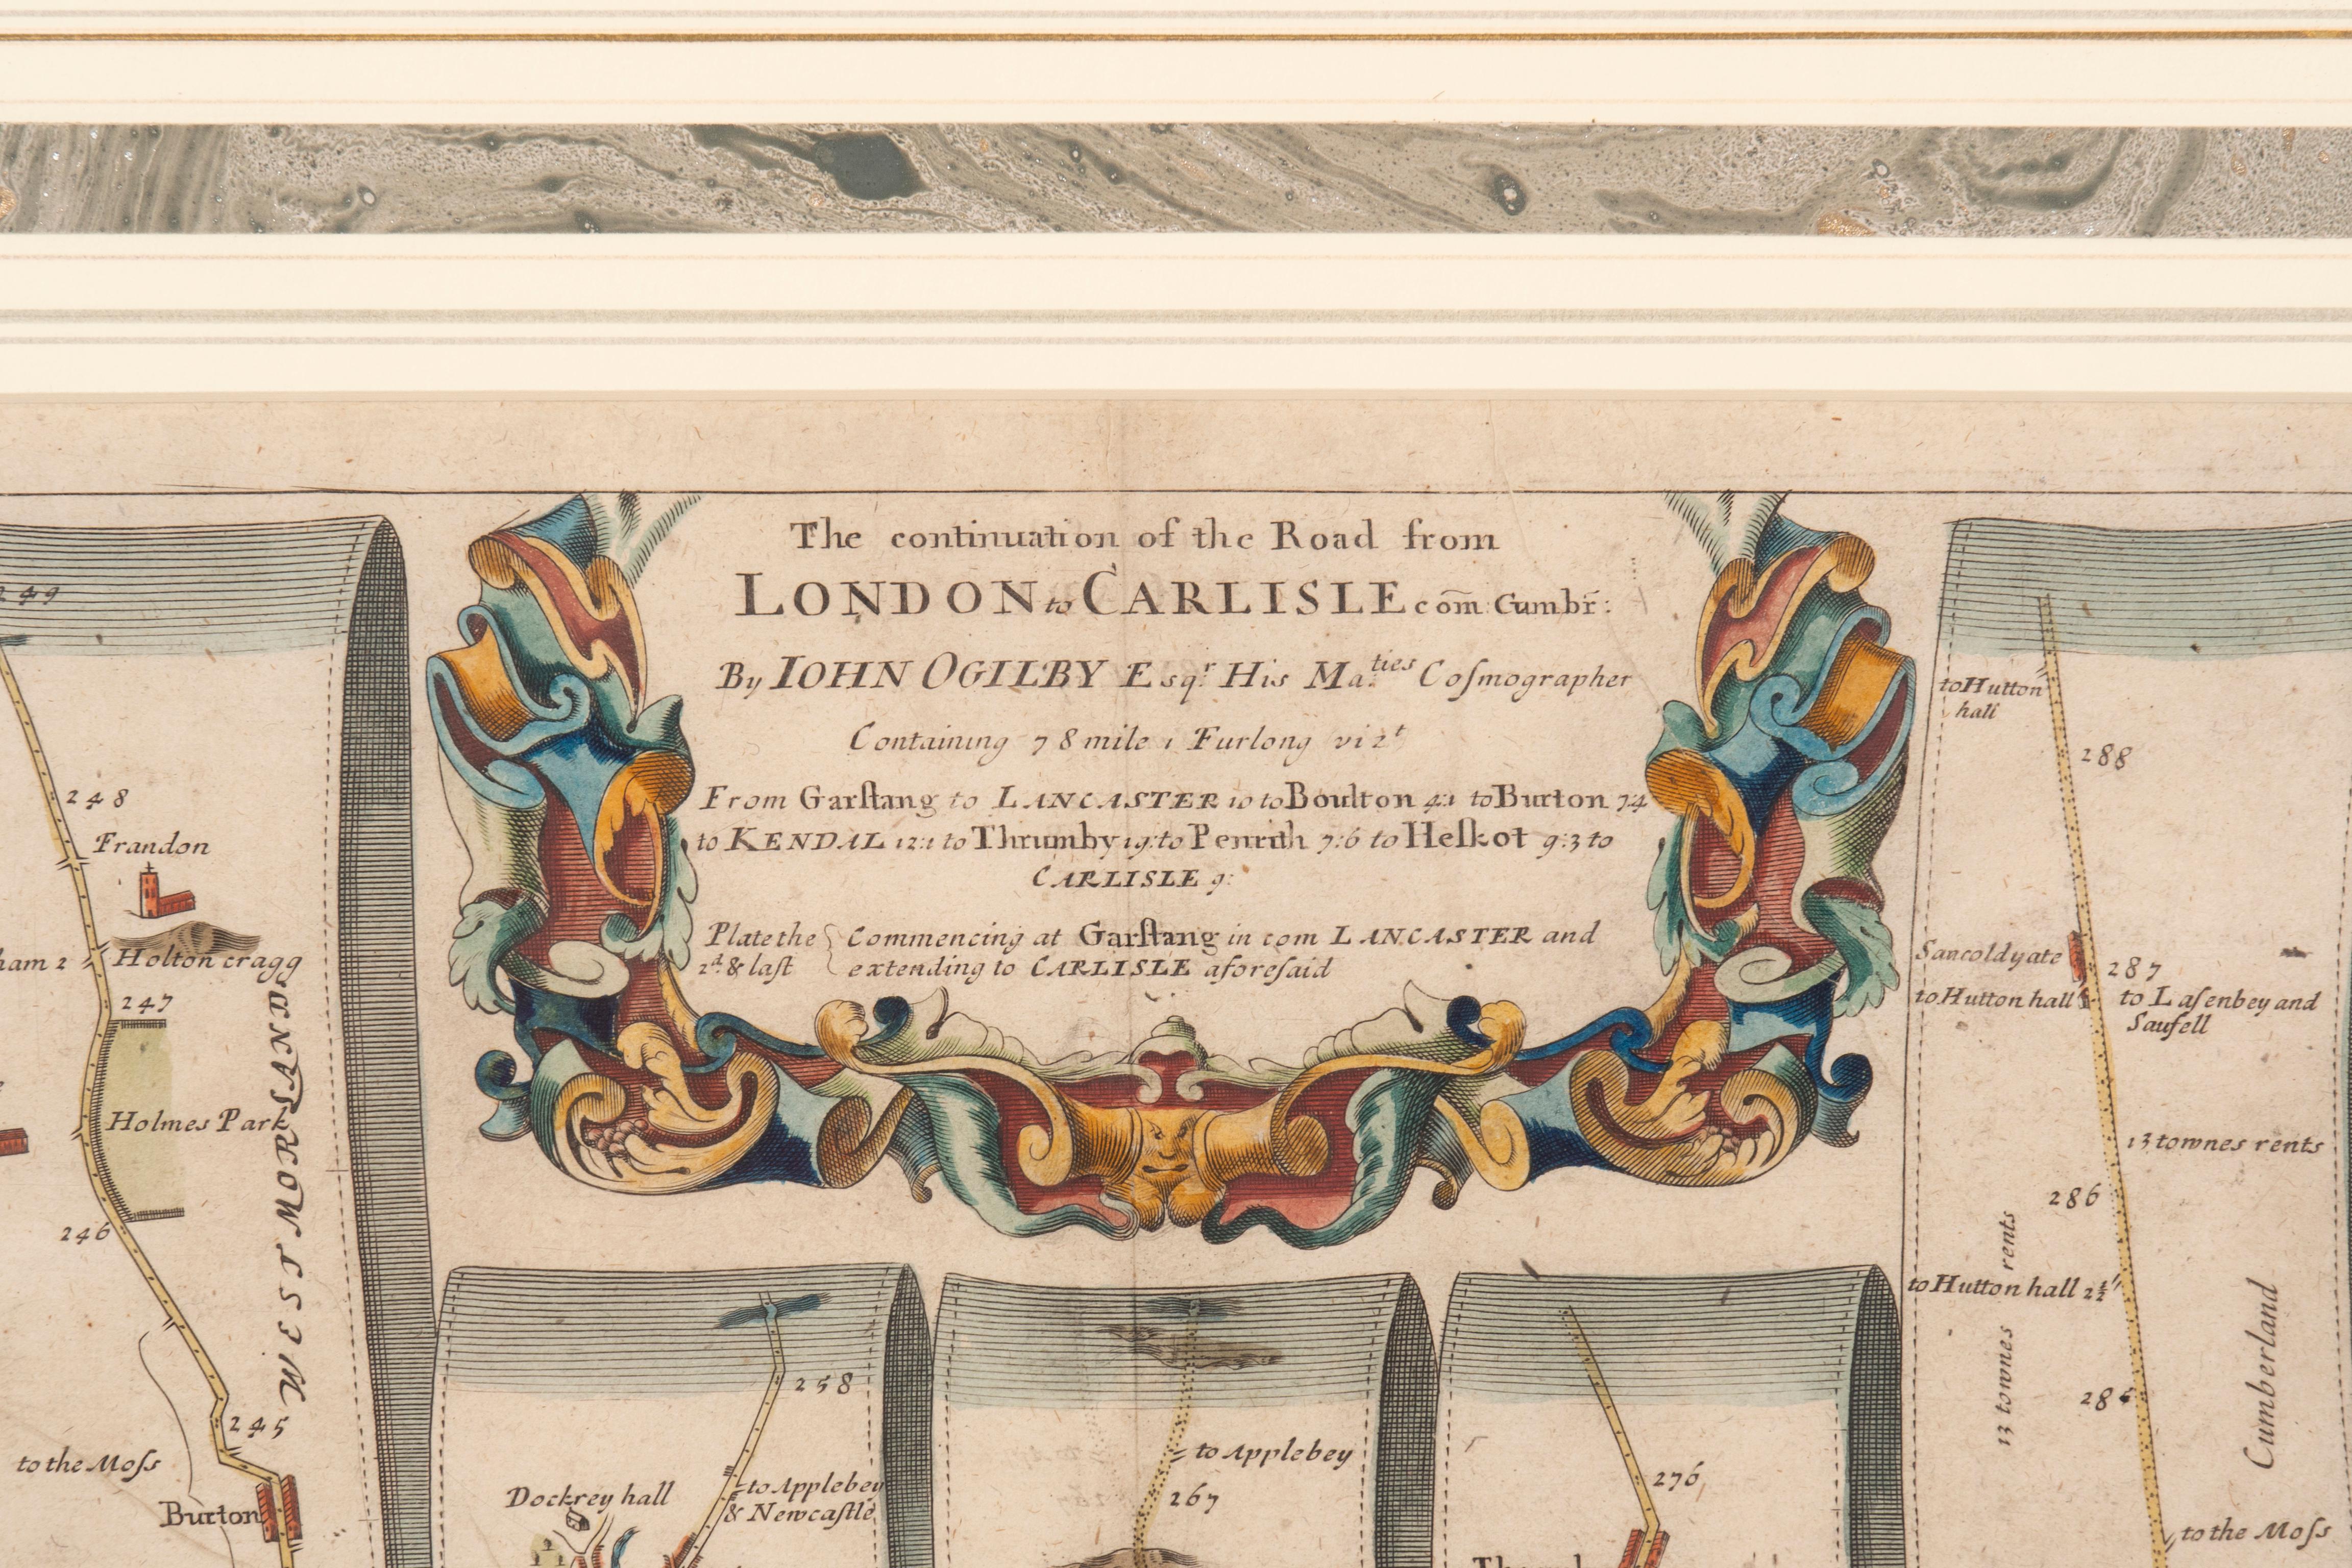 The continuation of the Road from
LONDON to CARLISLE com̄: Cumbr̄:
By IOHN OGILBY Esqr. His Ma.ties Coſmographer
Containing 78 mile 1 Furlong vizt
From Garſtang to LANCASTER 10 to Boulton 4:1 to Burton 7:4
to KENDAL 12:1 to Thrumby 19: to Penrith 7:6 to Heſkot 9:3 to
CARLISLE 9:
Plate the
2d. & laſt
Commencing at Garſtang in com LANCASTER and
extending to CARLISLE aforeſaid
249
248
Frandon
Holton cragg
247
Holmes Park
WESTMORLAND
246
245
to the Moſs
Burton
258
Dockrey hall
to Applebey
& Newcaſtle
to Applebey
267
276
to Hutton
hall
288
Sancoldyate
287
to Hutton hall
to Laſenbey and
Saufell
13 townes rents
286
13 townes rents
to Hutton hall 2½
Cumberland
285
to the Moſs